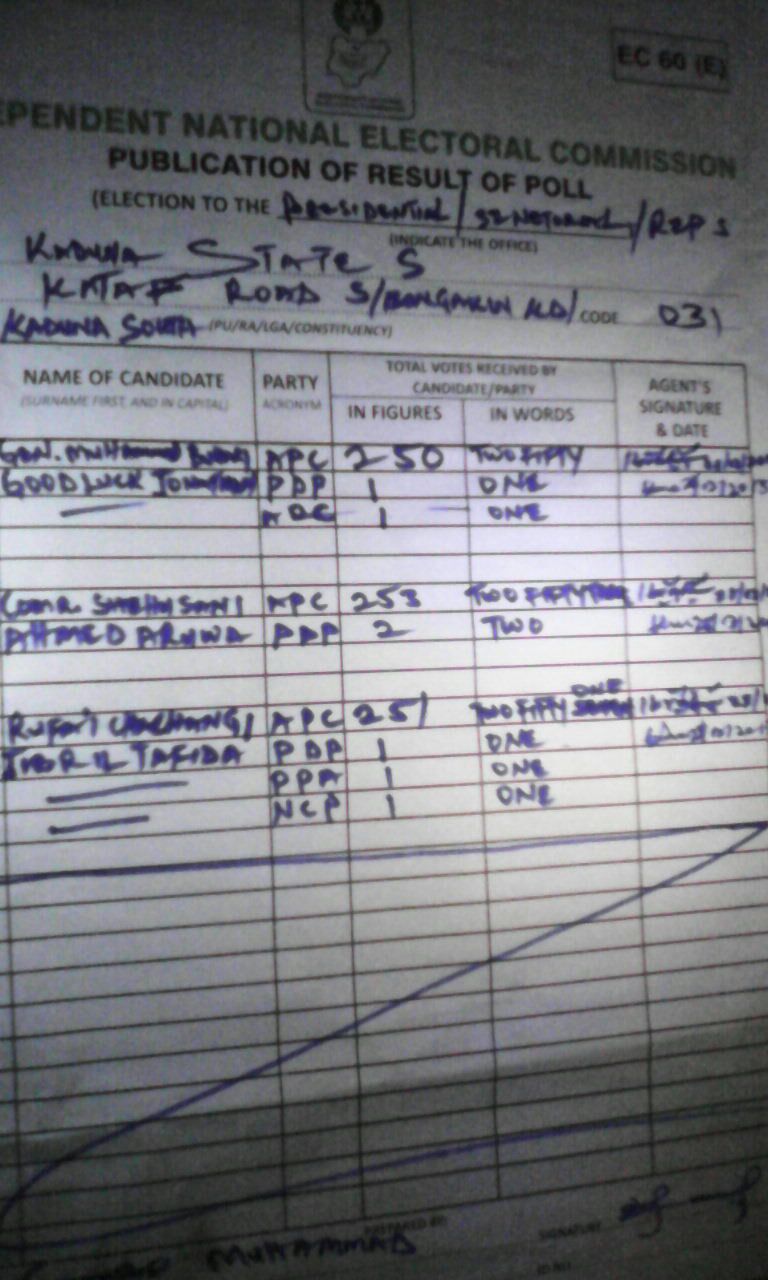 EC 60 (E)
EPENDENT NATIONAL ELECTORAL COMMISSION
PUBLICATION OF RESULT OF POLL
(ELECTION TO THE PRESIDENTIAL/SENETORIAL/REPS
(INDICATE THE OFFICE)
KADUNA STATE S
KATAF ROAD S/ RD/ CODE 031
KADUNA SOUTH (PU/RA/LGA/CONSTITUENCY)
NAME OF CANDIDATE PARTY TOTAL VOTES RECEIVED BY CANDIDATE/PARTY AGENT'S SIGNATURE & DATE
(SURNAME FIRST, AND IN CAPITAL) ACRONYM IN FIGURES IN WORDS
GEN. MUHAMMAD BUHARI APC 250 TWO FIFTY
GOODLUCK JONATHAN PDP 1 ONE
ADC 1 ONE
COMR. SHEHU SANI APC 253 TWO FIFTY
AHMED ARUWA PDP 2 TWO
RUFA'I CHANCHANGI APC 251 TWO FIFTY ONE
JIBRIL TAFIDA PDP 1 ONE
PPA 1 ONE
NCP 1 ONE
PREPARED BY SIGNATURE
MUHAMMAD